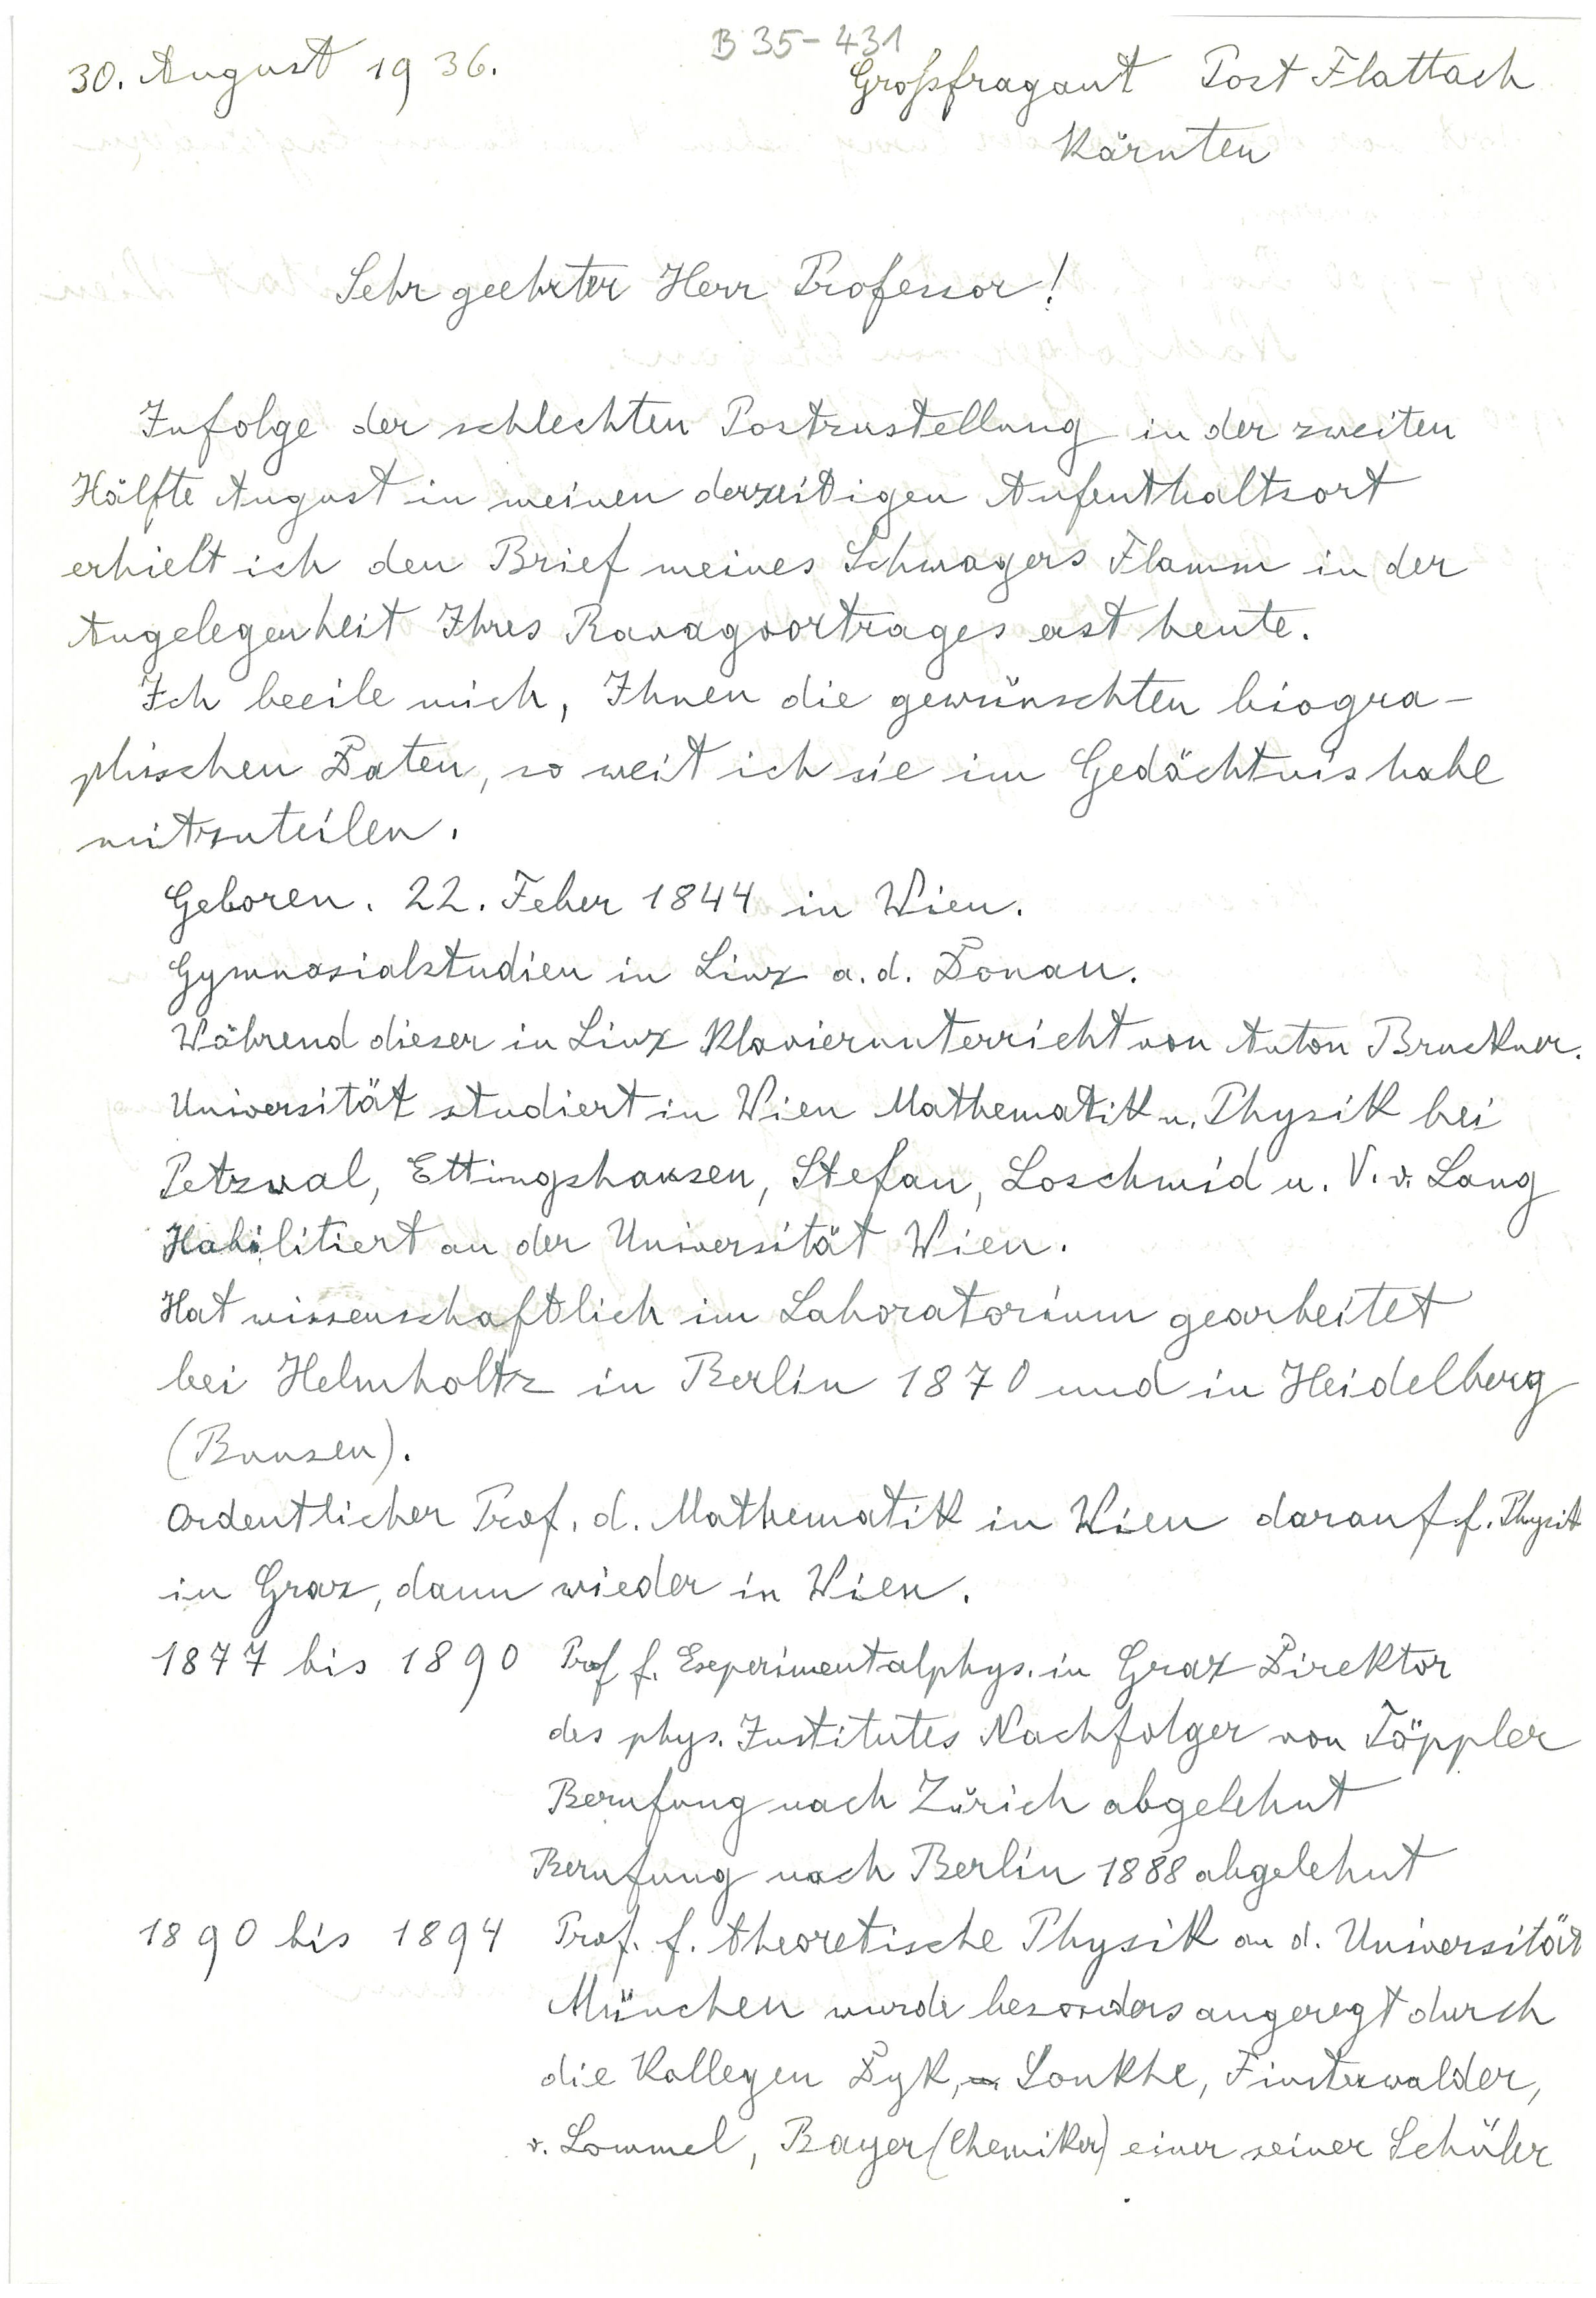 B 35-431
30. August 1936.
Großfragant Post Flattach
Kärnten
Sehr geehrter Herr Professor!
Infolge der schlechten Postzustellung in der zweiten
Hälfte August in meinen derzeitigen Aufenthaltsort
erhielt ich den Brief meines Schwagers Flamm in der
Angelegenheit Ihres Ravagvortrages erst heute.
Ich beeile mich, Ihnen die gewünschten biogra-
phischen Daten, so weit ich sie im Gedächtnis habe
mitzuteilen.
Geboren. 22. Feber 1844 in Wien.
Gymnasialstudien in Linz a. d. Donau.
Während dieser in Linz Klavierunterricht von Anton Bruckner.
Universität studiert in Wien Mathematik u. Physik bei
Petzval, Ettingshausen, Stefan, Loschmid u. V. v. Lang
Habilitiert an der Universität Wien.
Hat wissenschaftlich im Laboratorium gearbeitet
bei Helmholtz in Berlin 1870 und in Heidelberg
(Bunsen).
Ordentlicher Prof. d. Mathematik in Wien darauf f. Physik
in Graz, dann wieder in Wien.
1877 bis 1890 Prof f. Experimentalphys. in Graz Direktor
des phys. Institutes Nachfolger von Töppler
Berufung nach Zürich abgelehnt
Berufung nach Berlin 1888 abgelehnt
1890 bis 1894 Prof. f. theoretische Physik an d. Universität
München wurde besonders angeregt durch
die Kollegen Dyk, Sonkhe, Finsterwalder,
v. Lommel, Bayer (Chemiker) einer seiner Schüler